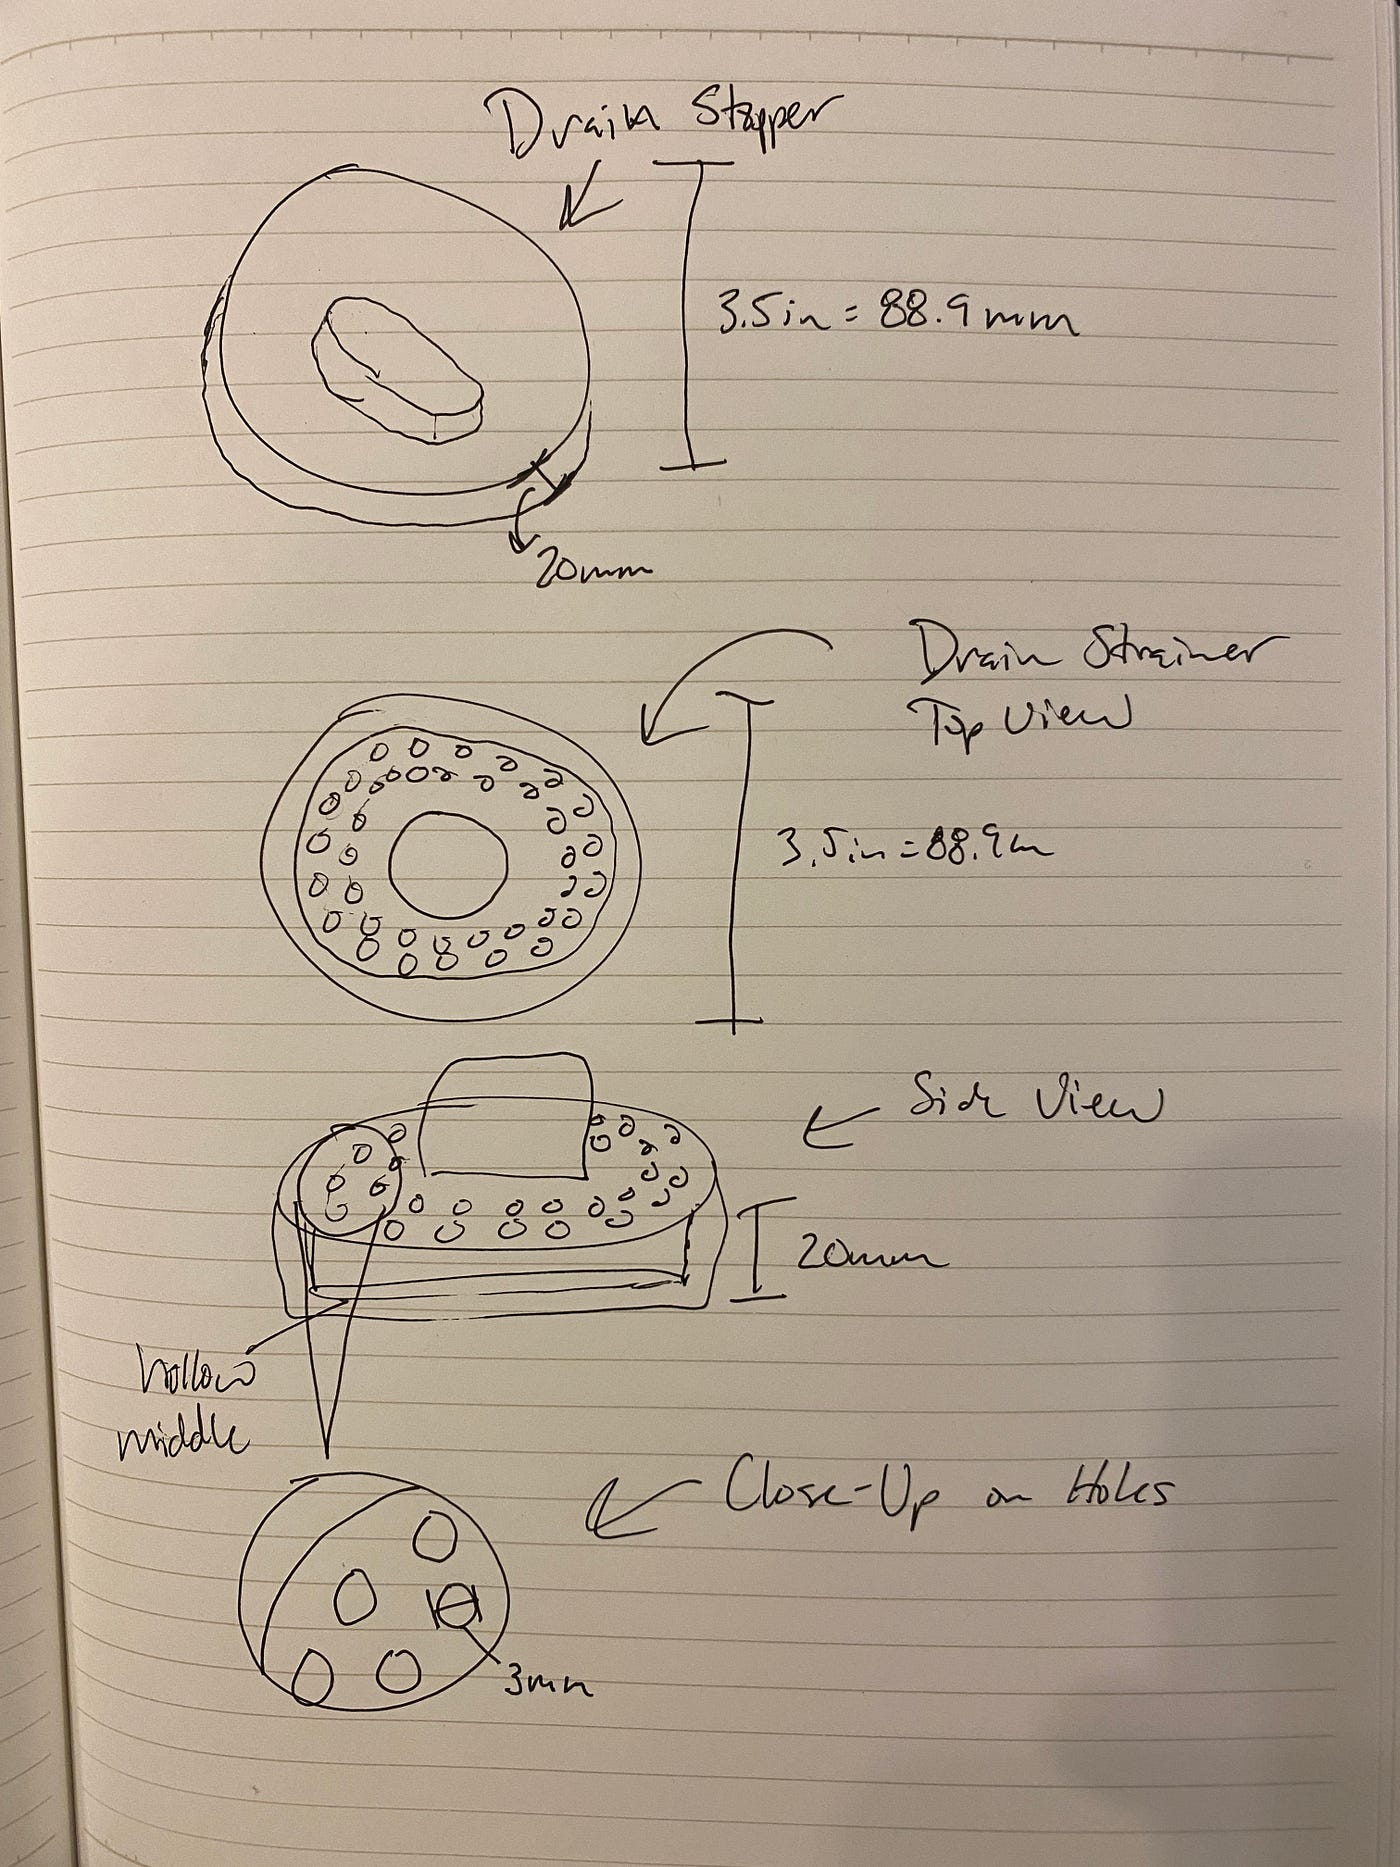 Drain Stopper
3.5in = 88.9mm
20mm
Drain Strainer
Top View
3.5in = 88.9m
Side View
20mm
hollow
middle
Close-Up on Holes
3mm